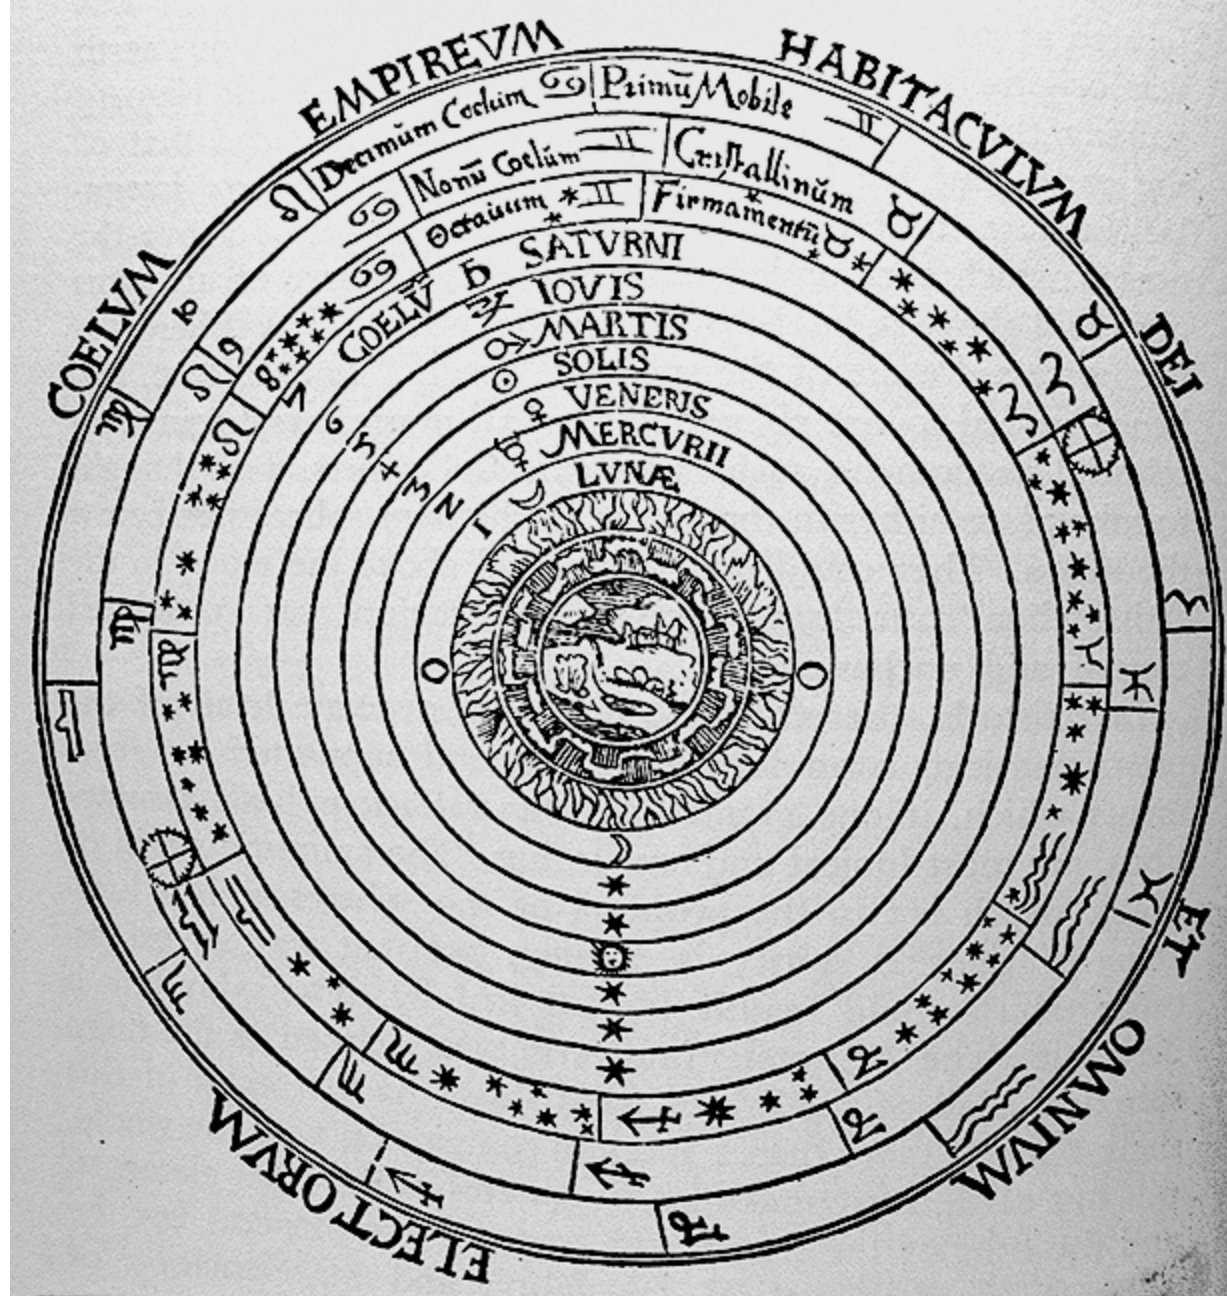 COELVM EMPIREVM HABITACVLVM DEI ET OMNIVM ELECTORVM
Decimūm Coelum ♋ Primū Mobile ♊
Nonū Coelūm ♊ Cristallinūm ♉
Octauum ♊ Firmamentū ♉
COELV ♄ SATVRNI
♃ IOVIS
♂ MARTIS
☉ SOLIS
♀ VENERIS
☿ MERCVRII
☽ LVNÆ
10
9
8
7
6
5
4
3
2
1